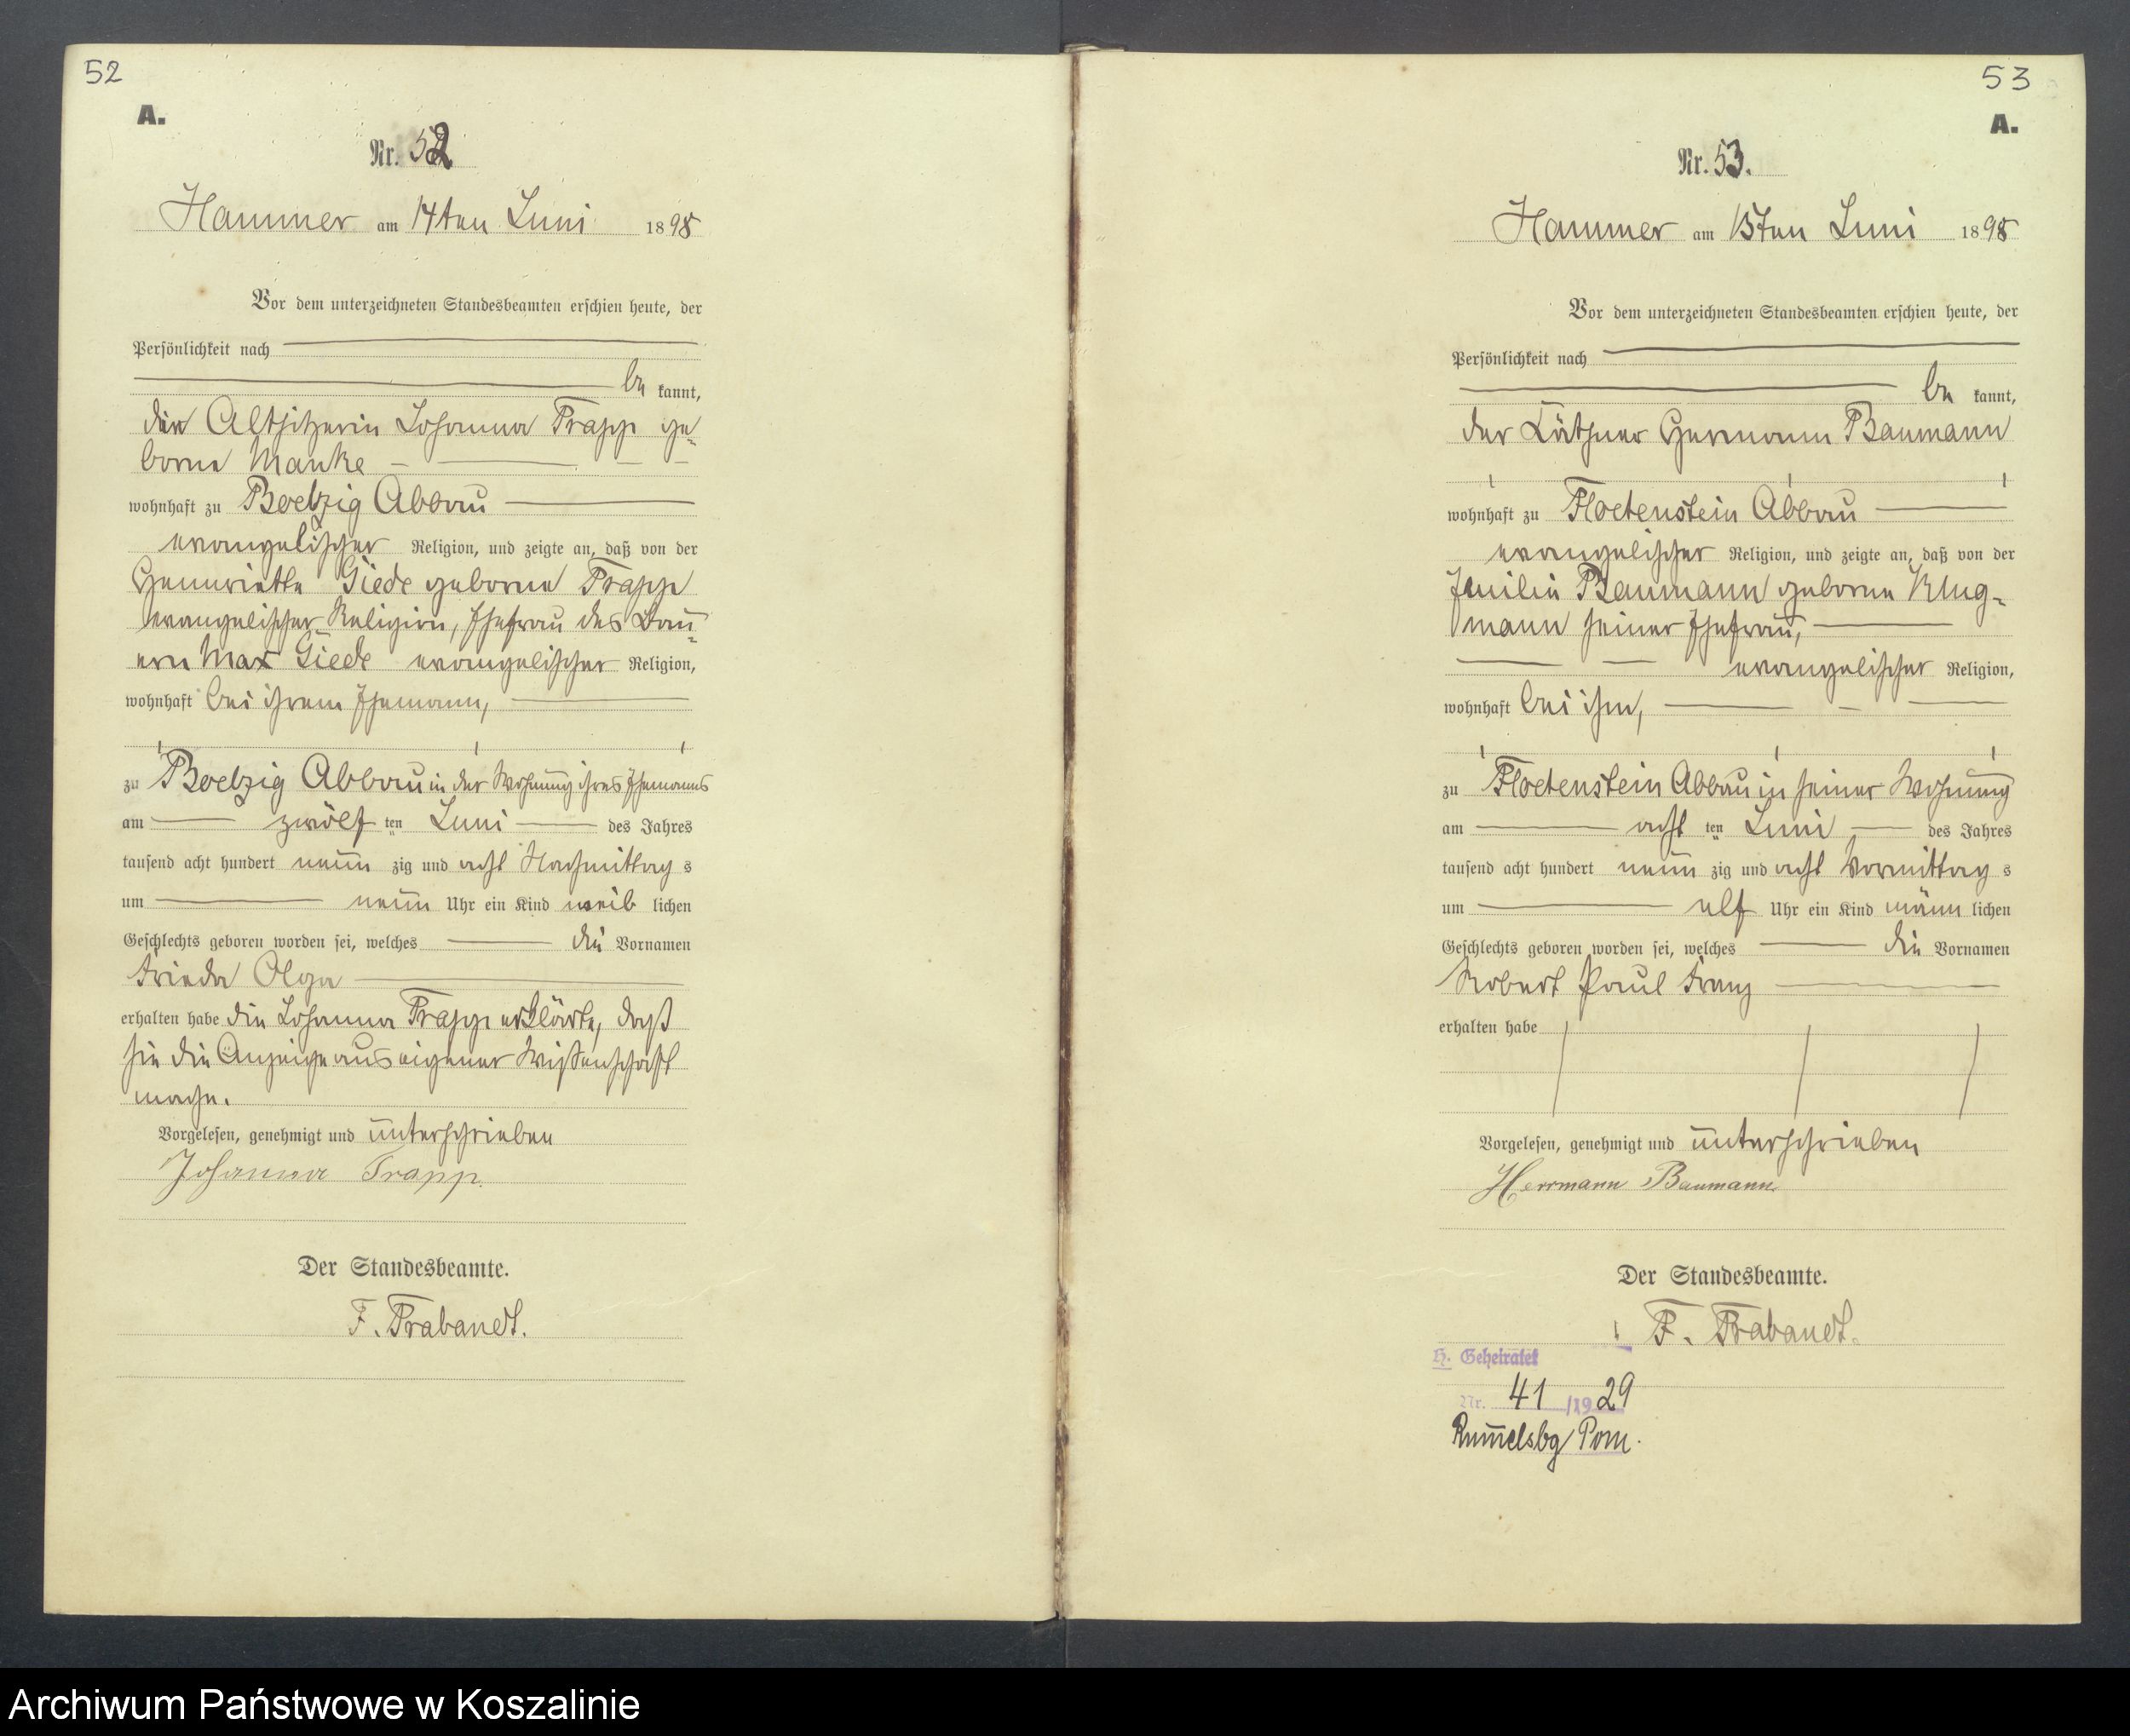 52
A.
Nr. 52
Hammer am 14ten Juni 1898
Vor dem unterzeichneten Standesbeamten erschien heute, der
Persönlichkeit nach
be kannt,
die Altsitzerin Johanna Trapp ge-
borne Manke
wohnhaft zu Boelzig Abbau
evangelischer Religion, und zeigte an, daß von der
Henriette Giede geborne Trapp
evangelischer Religion, Ehefrau des Bau-
ern Max Giede evangelischer Religion,
wohnhaft bei ihrem Ehemann,
zu Boelzig Abbau in der Wohnung ihres Ehemanns
am zwölf ten Juni des Jahres
tausend acht hundert neun zig und acht Nachmittag s
um neun Uhr ein Kind weib lichen
Geschlechts geboren worden sei, welches die Vornamen
Frieda Olga
erhalten habe die Johanna Trapp erklärte, daß
sie die Anzeige aus eigener Wissenschaft
mache.
Vorgelesen, genehmigt und unterschrieben
Johanna Trapp.
Der Standesbeamte.
F. Trabandt.
53
A.
Nr. 53.
Hammer am 15ten Juni 1898
Vor dem unterzeichneten Standesbeamten erschien heute, der
Persönlichkeit nach
be kannt,
der Käthner Hermann Baumann
wohnhaft zu Floetenstein Abbau
evangelischer Religion, und zeigte an, daß von der
Emilie Baumann geborne Klug-
mann seiner Ehefrau,
evangelischer Religion,
wohnhaft bei ihm,
zu Floetenstein Abbau in seiner Wohnung
am acht ten Juni des Jahres
tausend acht hundert neun zig und acht Vormittag s
um elf Uhr ein Kind männ lichen
Geschlechts geboren worden sei, welches die Vornamen
Robert Paul Franz
erhalten habe
Vorgelesen, genehmigt und unterschrieben
Herrmann Baumann
Der Standesbeamte.
F. Trabandt.
H. Geheiratet
Nr. 41 /1929
Rummelsbg Pom.
Archiwum Państwowe w Koszalinie